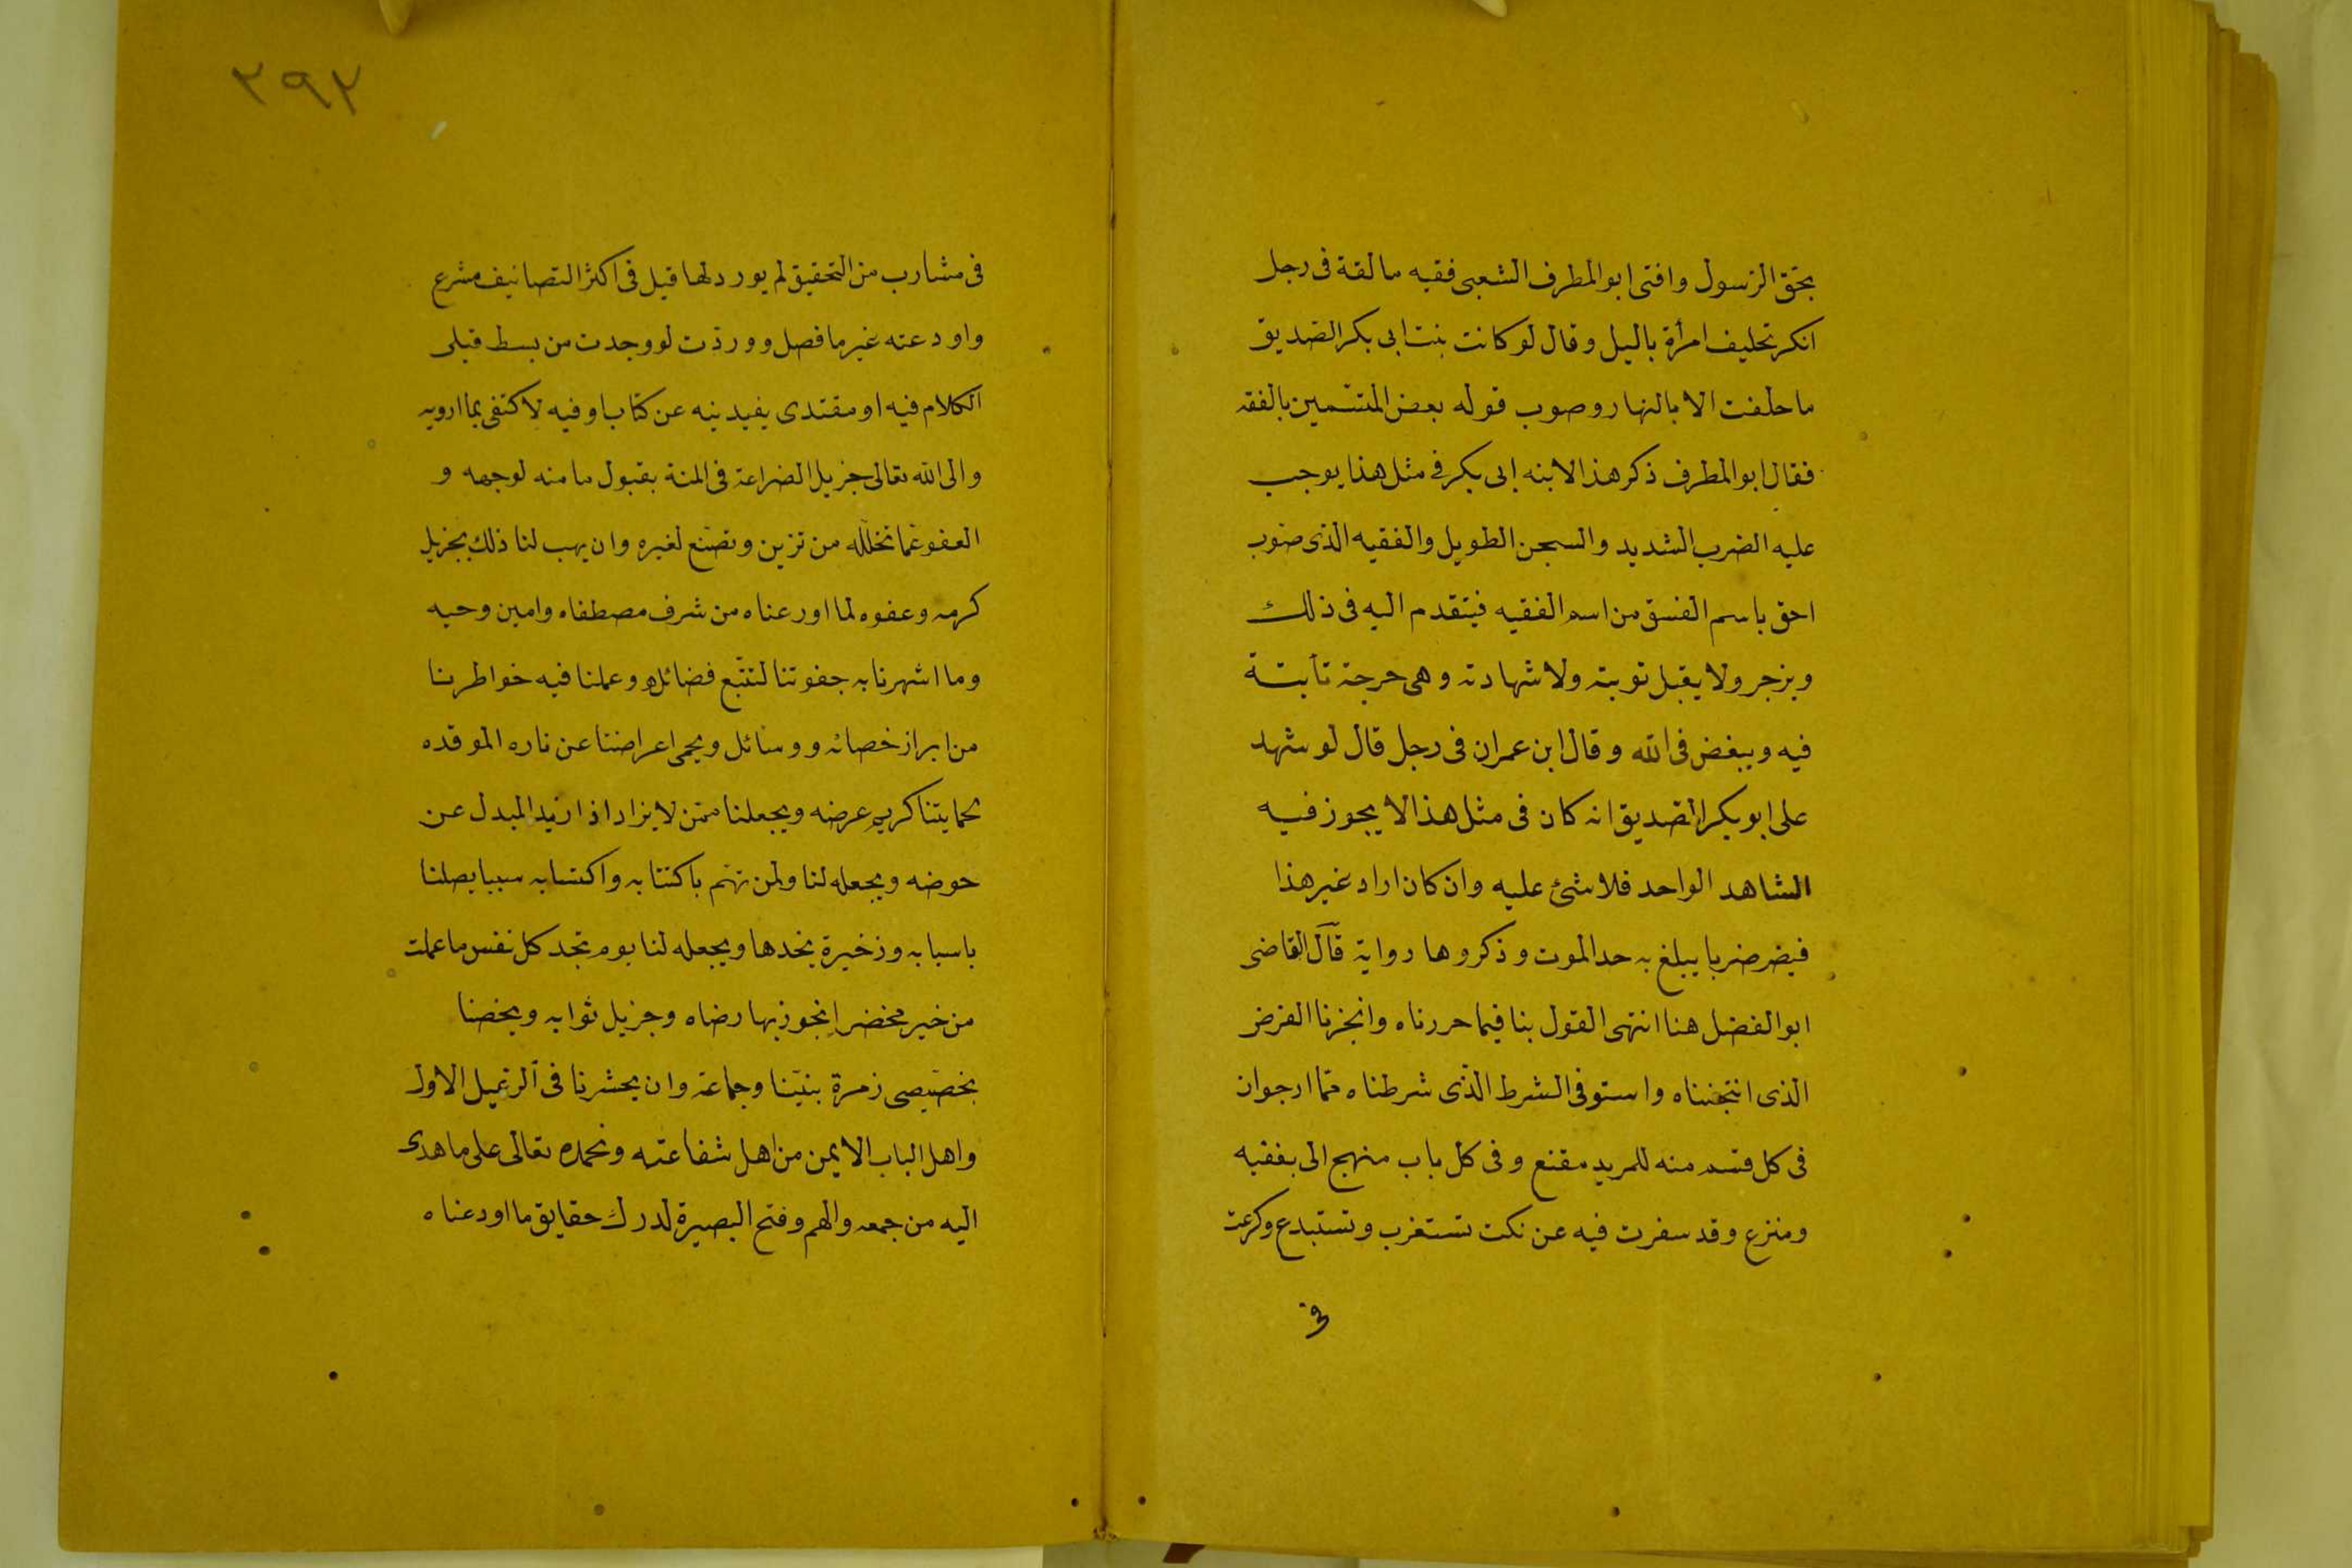 بحق الرسول وافتى ابو المطرف الشعبى فقيه مالقة فى رجل
انكر تحليف امرأة باليل وقال لو كانت بنت ابى بكر الصديق
ما حلفت الا بالنهار وصوب قوله بعض المتسمين بالفقه
فقال ابو المطرف ذكر هذا الابنه ابى بكر فى مثل هذا يوجب
عليه الضرب الشديد والسجن الطويل والفقيه الذى صوب
احق باسم الفسق من اسم الفقيه فيتقدم اليه فى ذلك
ويزجر ولا يقبل توبته ولا شهادته وهى حرجة ثابتة
فيه ويبغض فى الله وقال ابن عمران فى رجل قال لو شهد
على ابو بكر الصديق انه كان فى مثل هذا لا يجوز فيه
الشاهد الواحد فلا شئ عليه وان كان اراد غير هذا
فيضر ضربا يبلغ به حد الموت وذكروها رواية قال القاضى
ابو الفضل هنا انتهى القول بنا فيما حررناه وانجزنا الغرض
الذى انتجنناه واستوفى الشرط الذى شرطناه مما ارجو ان
فى كل قسم منه للمريد مقنع وفى كل باب منهج الى بغقيه
ومنزع وقد سفرت فيه عن نكت تستغرب وتستبدع وكرعت
فى
٣٩٢
فى مشارب من التحقيق لم يورد لها قيل فى اكثر التصانيف مشرع
واودعته غير ما فصل ووردت لو وجدت من بسط قبلى
الكلام فيه او مقتدى يفيدنيه عن كتاب او فيه لاكتفى بما ارويه
والى الله تعالى جزيل الضراعة فى المنة بقبول ما منه لوجهه و
العفو عما تخلله من تزين وتصنع لغيره وان يهب لنا ذلك بجزيل
كرمه وعفوه لما اورعناه من شرف مصطفاه وامين وحيه
وما اشهرنا به جفوتنا لتتبع فضائله وعملنا فيه خواطرنا
من ابراز خصائه ووسائل ويحمى اعراضنا عن ناره الموقده
بحمايتنا كريم عرضه ويجعلنا ممن لا يزاد اذا ازيد المبدل عن
حوضه ويجعله لنا ولمن تهم باكتتابه واكتسابه سببا يصلنا
باسبابه وذخيرة يخدها ويجعله لنا يوم تجد كل نفس ما عملت
من خير محضرا نجوز بها رضاه وجزيل ثوابه ويخصنا
بخصيصى زمرة نبينا وجماعة وان يحشرنا فى الرعيل الاول
واهل الباب الايمن من اهل شفاعته ونحمده تعالى على ما هدى
اليه من جمعه والهم وفتح البصيرة لدرك حقايق ما اودعناه